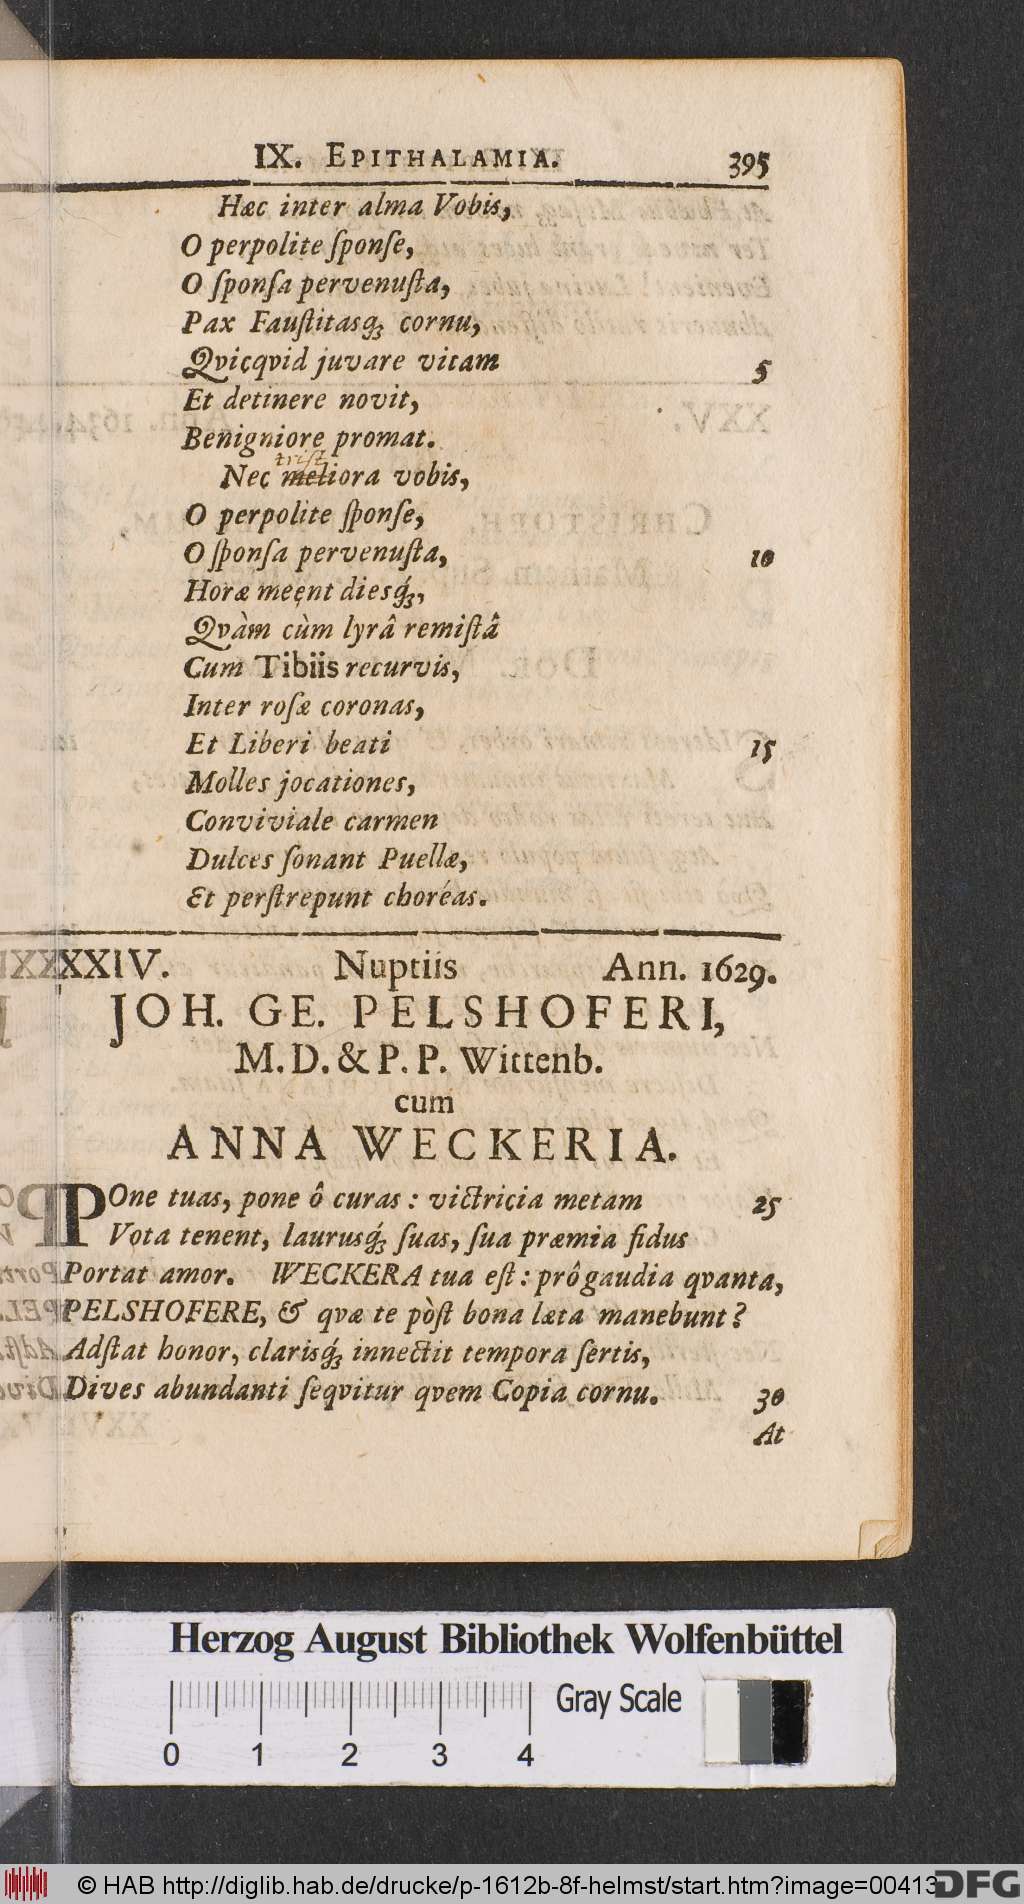 IX. EPITHALAMIA. 395
Hæc inter alma Vobis,
O perpolite ſponſe,
O ſponſa pervenuſta,
Pax Fauſtitasq́ꝫ cornu,
Qvicqvid juvare vitam 5
Et detinere novit,
Benigniore promat.
triſt
Nec meliora vobis,
O perpolite ſponſe,
O ſponſa pervenuſta, 10
Horæ meent diesq́ꝫ,
Qvàm cùm lyrâ remiſtâ
Cum Tibiis recurvis,
Inter roſæ coronas,
Et Liberi beati 15
Molles jocationes,
Conviviale carmen
Dulces ſonant Puellæ,
Et perſtrepunt choréas.
XXXIV. Nuptiis Ann. 1629.
JOH. GE. PELSHOFERI,
M. D. & P. P. Wittenb.
cum
ANNA WECKERIA.
POne tuas, pone ô curas : victricia metam 25
Vota tenent, laurusq́ꝫ ſuas, ſua præmia fidus
Portat amor. WECKERA tua eſt : prô gaudia qvanta,
PELSHOFERE, & qvæ te pòſt bona læta manebunt?
Adſtat honor, clarisq́ꝫ innectit tempora ſertis,
Dives abundanti ſeqvitur qvem Copia cornu. 30
At
Herzog August Bibliothek Wolfenbüttel
Gray Scale
0 1 2 3 4
© HAB http://diglib.hab.de/drucke/p-1612b-8f-helmst/start.htm?image=00413
DFG